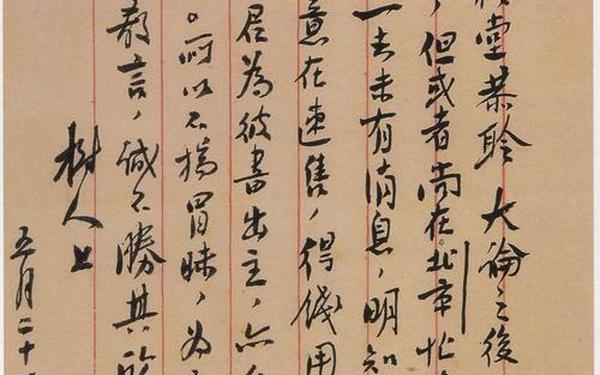 堂恭聆大論之後
，但或者尚在北京忙
一去未有消息，明知
意在速售，得錢用
居為彼書出主，亦
。所以不揣冒昧，為
教言，誠不勝其
樹人上
五月二十